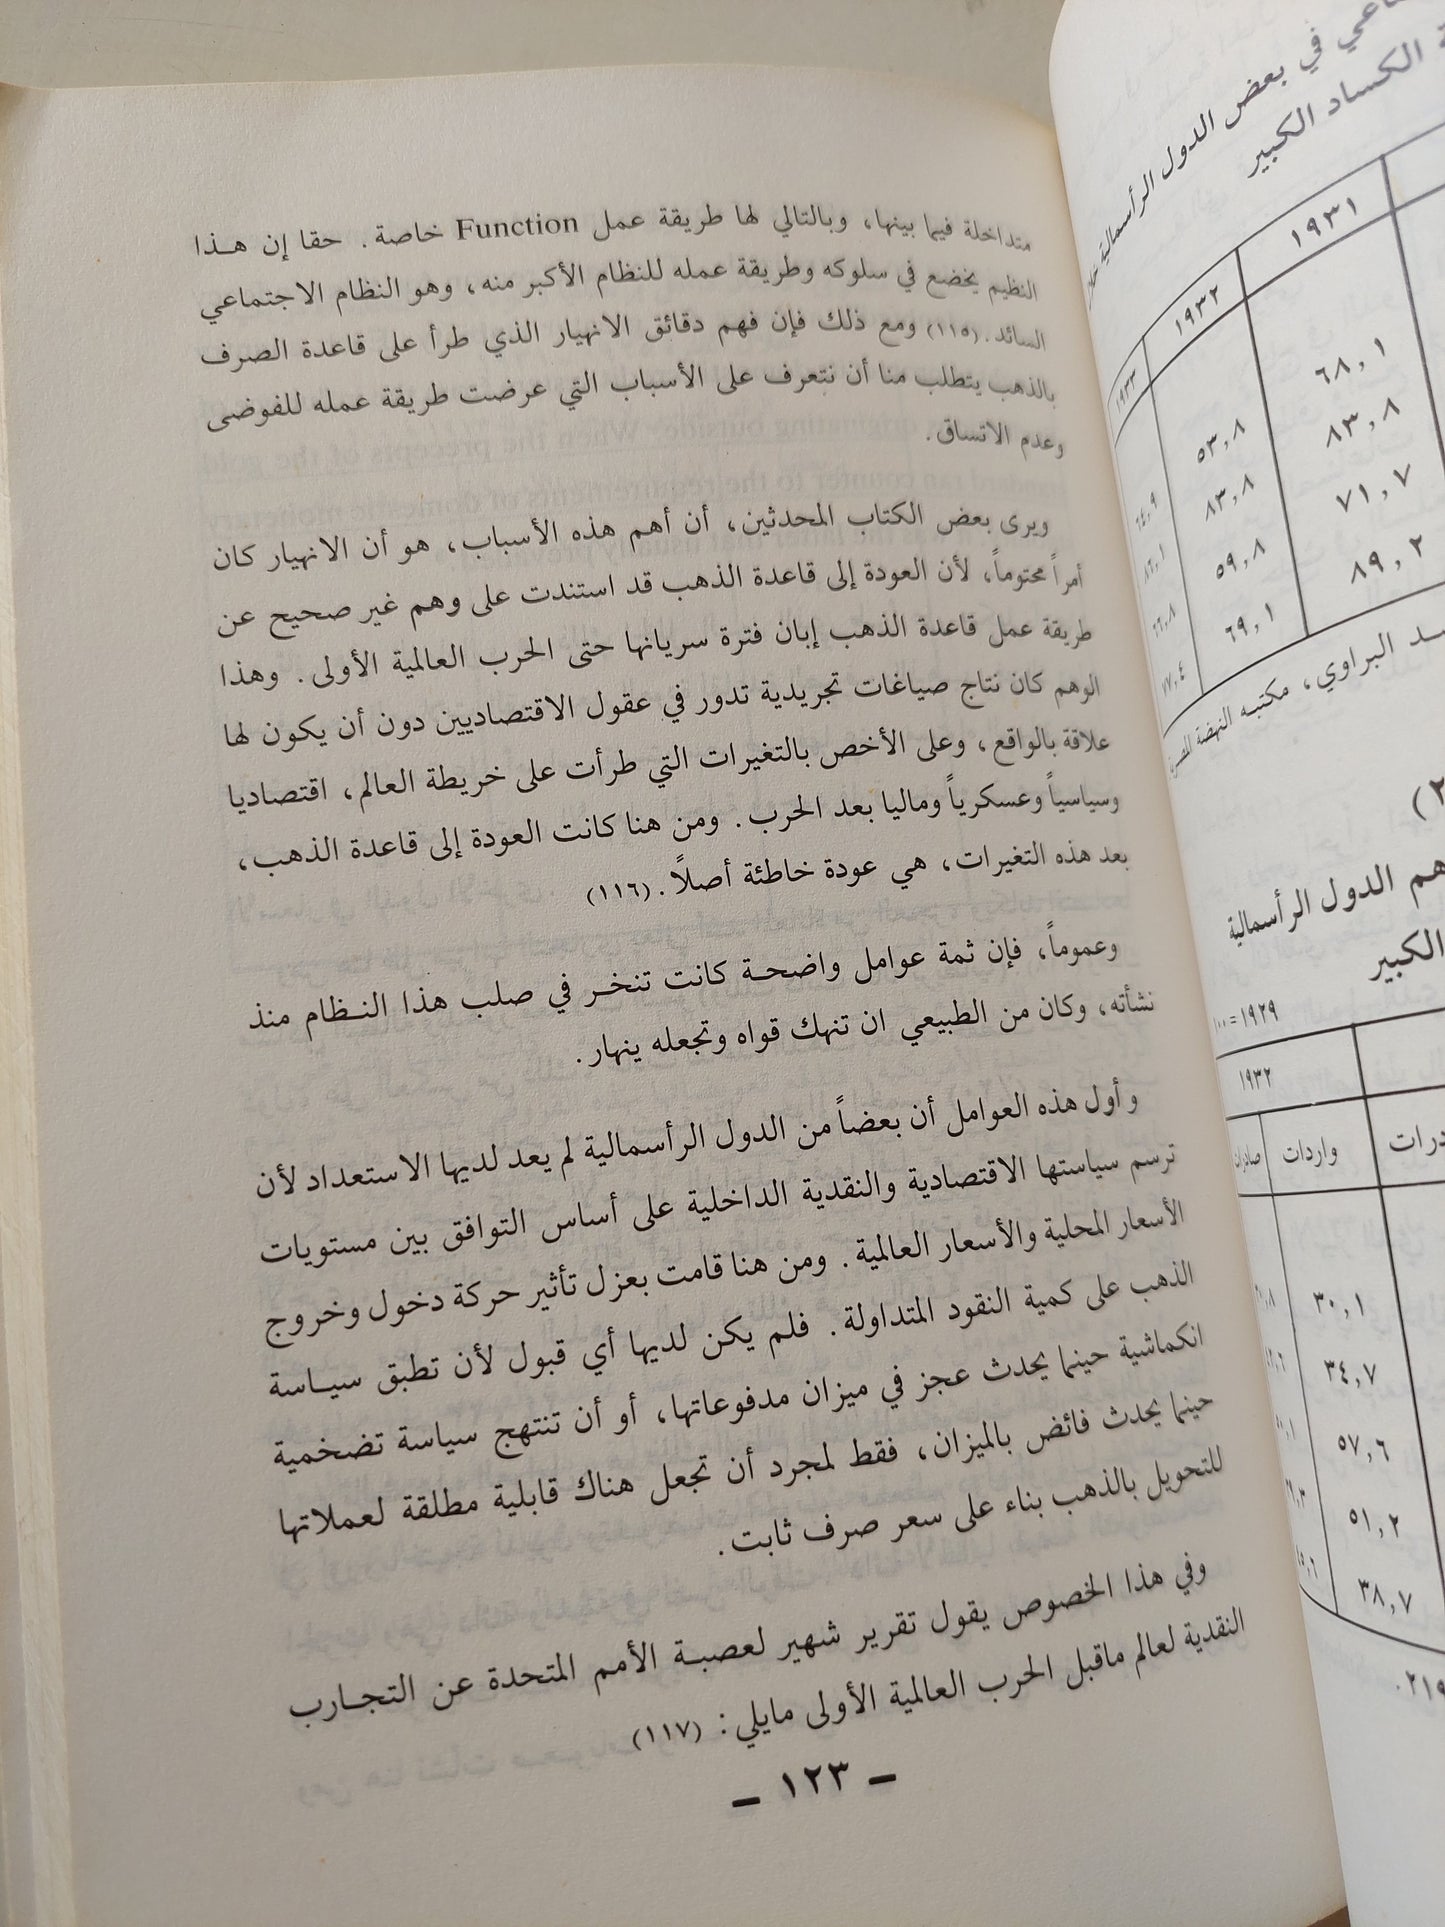 متداخلة فيما بينها، وبالتالي لها طريقة عمل Function خاصة. حقا إن هـذا
النظيم يخضع في سلوكه وطريقة عمله للنظام الأكبر منه، وهو النظام الاجتماعي
السائد.(١١٥) ومع ذلك فإن فهم دقائق الانهيار الذي طرأ على قاعدة الصرف
بالذهب يتطلب منا أن نتعرف على الأسباب التي عرضت طريقة عمله للفوضى
وعدم الاتساق.
ويرى بعض الكتاب المحدثين، أن أهم هذه الأسباب، هو أن الانهيار كان
أمراً محتوماً، لأن العودة إلى قاعدة الذهب قد استندت على وهم غير صحيح عن
طريقة عمل قاعدة الذهب إبان فترة سريانها حتى الحرب العالمية الأولى. وهذا
الوهم كان نتاج صياغات تجريدية تدور في عقول الاقتصاديين دون أن يكون لها
علاقة بالواقع، وعلى الأخص بالتغيرات التي طرأت على خريطة العالم، اقتصاديا
وسياسياً وعسكرياً وماليا بعد الحرب. ومن هنا كانت العودة إلى قاعدة الذهب،
بعد هذه التغيرات، هي عودة خاطئة أصلاً.(١١٦)
وعموماً، فإن ثمة عوامل واضحـة كانت تنخـر في صلب هذا النـظام منذ
نشأته، وكان من الطبيعي ان تنهك قواه وتجعله ينهار.
وأول هذه العوامل أن بعضاً من الدول الرأسمالية لم يعد لديها الاستعداد لأن
ترسم سياستها الاقتصادية والنقدية الداخلية على أساس التوافق بين مستويات
الأسعار المحلية والأسعار العالمية. ومن هنا قامت بعزل تأثير حركة دخول وخروج
الذهب على كمية النقود المتداولة. فلم يكن لديها أي قبول لأن تطبق سيـاسة
انكماشية حينما يحدث عجز في ميزان مدفوعاتها، أو أن تنتهج سياسة تضخمية
حينما يحدث فائض بالميزان، فقط لمجرد أن تجعل هناك قابلية مطلقة لعملاتها
للتحويل بالذهب بناء على سعر صرف ثابت.
وفي هذا الخصوص يقول تقرير شهير لعصبـة الأمم المتحدة عن التجـارب
النقدية لعالم ماقبل الحرب العالمية الأولى مايلي: (١١٧)
ـ ١٢٣ ـ
في بعض الدول الرأسمالية
الكساد الكبير
١٩٣١ ١٩٣٢ ١٩٣٣
٦٨,١ ٥٣,٨
٨٣,٨ ٨٣,٨ ٦٤,٩
٧١,٧ ٥٩,٨
٨٩,٢ ٦٩,١
البراوي، مكتبه النهضة
الدول الرأسمالية
الكبير
١٩٢٩=١٠٠
١٩٣٢
واردات
٣٠,١
٣٤,٧
٥٧,٦
٥١,٢
٣٨,٧